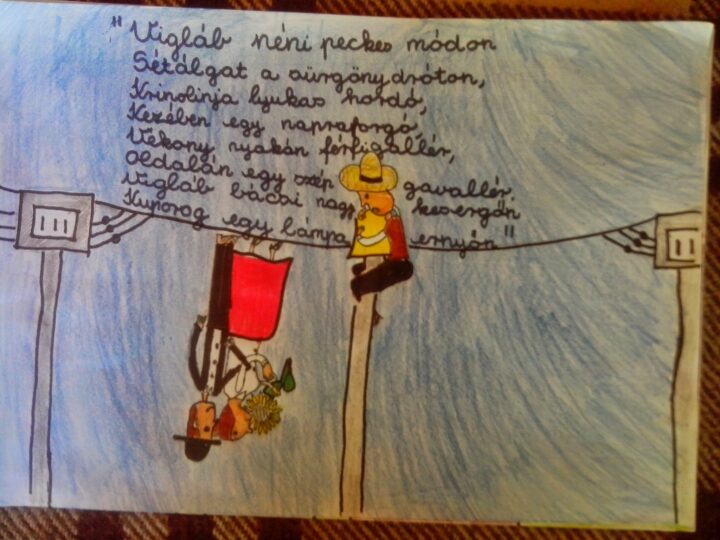 "Vigláb néni peckes módon
Sétálgat a sürgönydróton,
Krinolinja lyukas hordó,
Kezében egy napraforgó,
Vékony nyakán férfigallér,
Oldalán egy szép gavallér.
Vigláb bácsi nagy kesergőn
Kuporog egy lámpaernyőn"